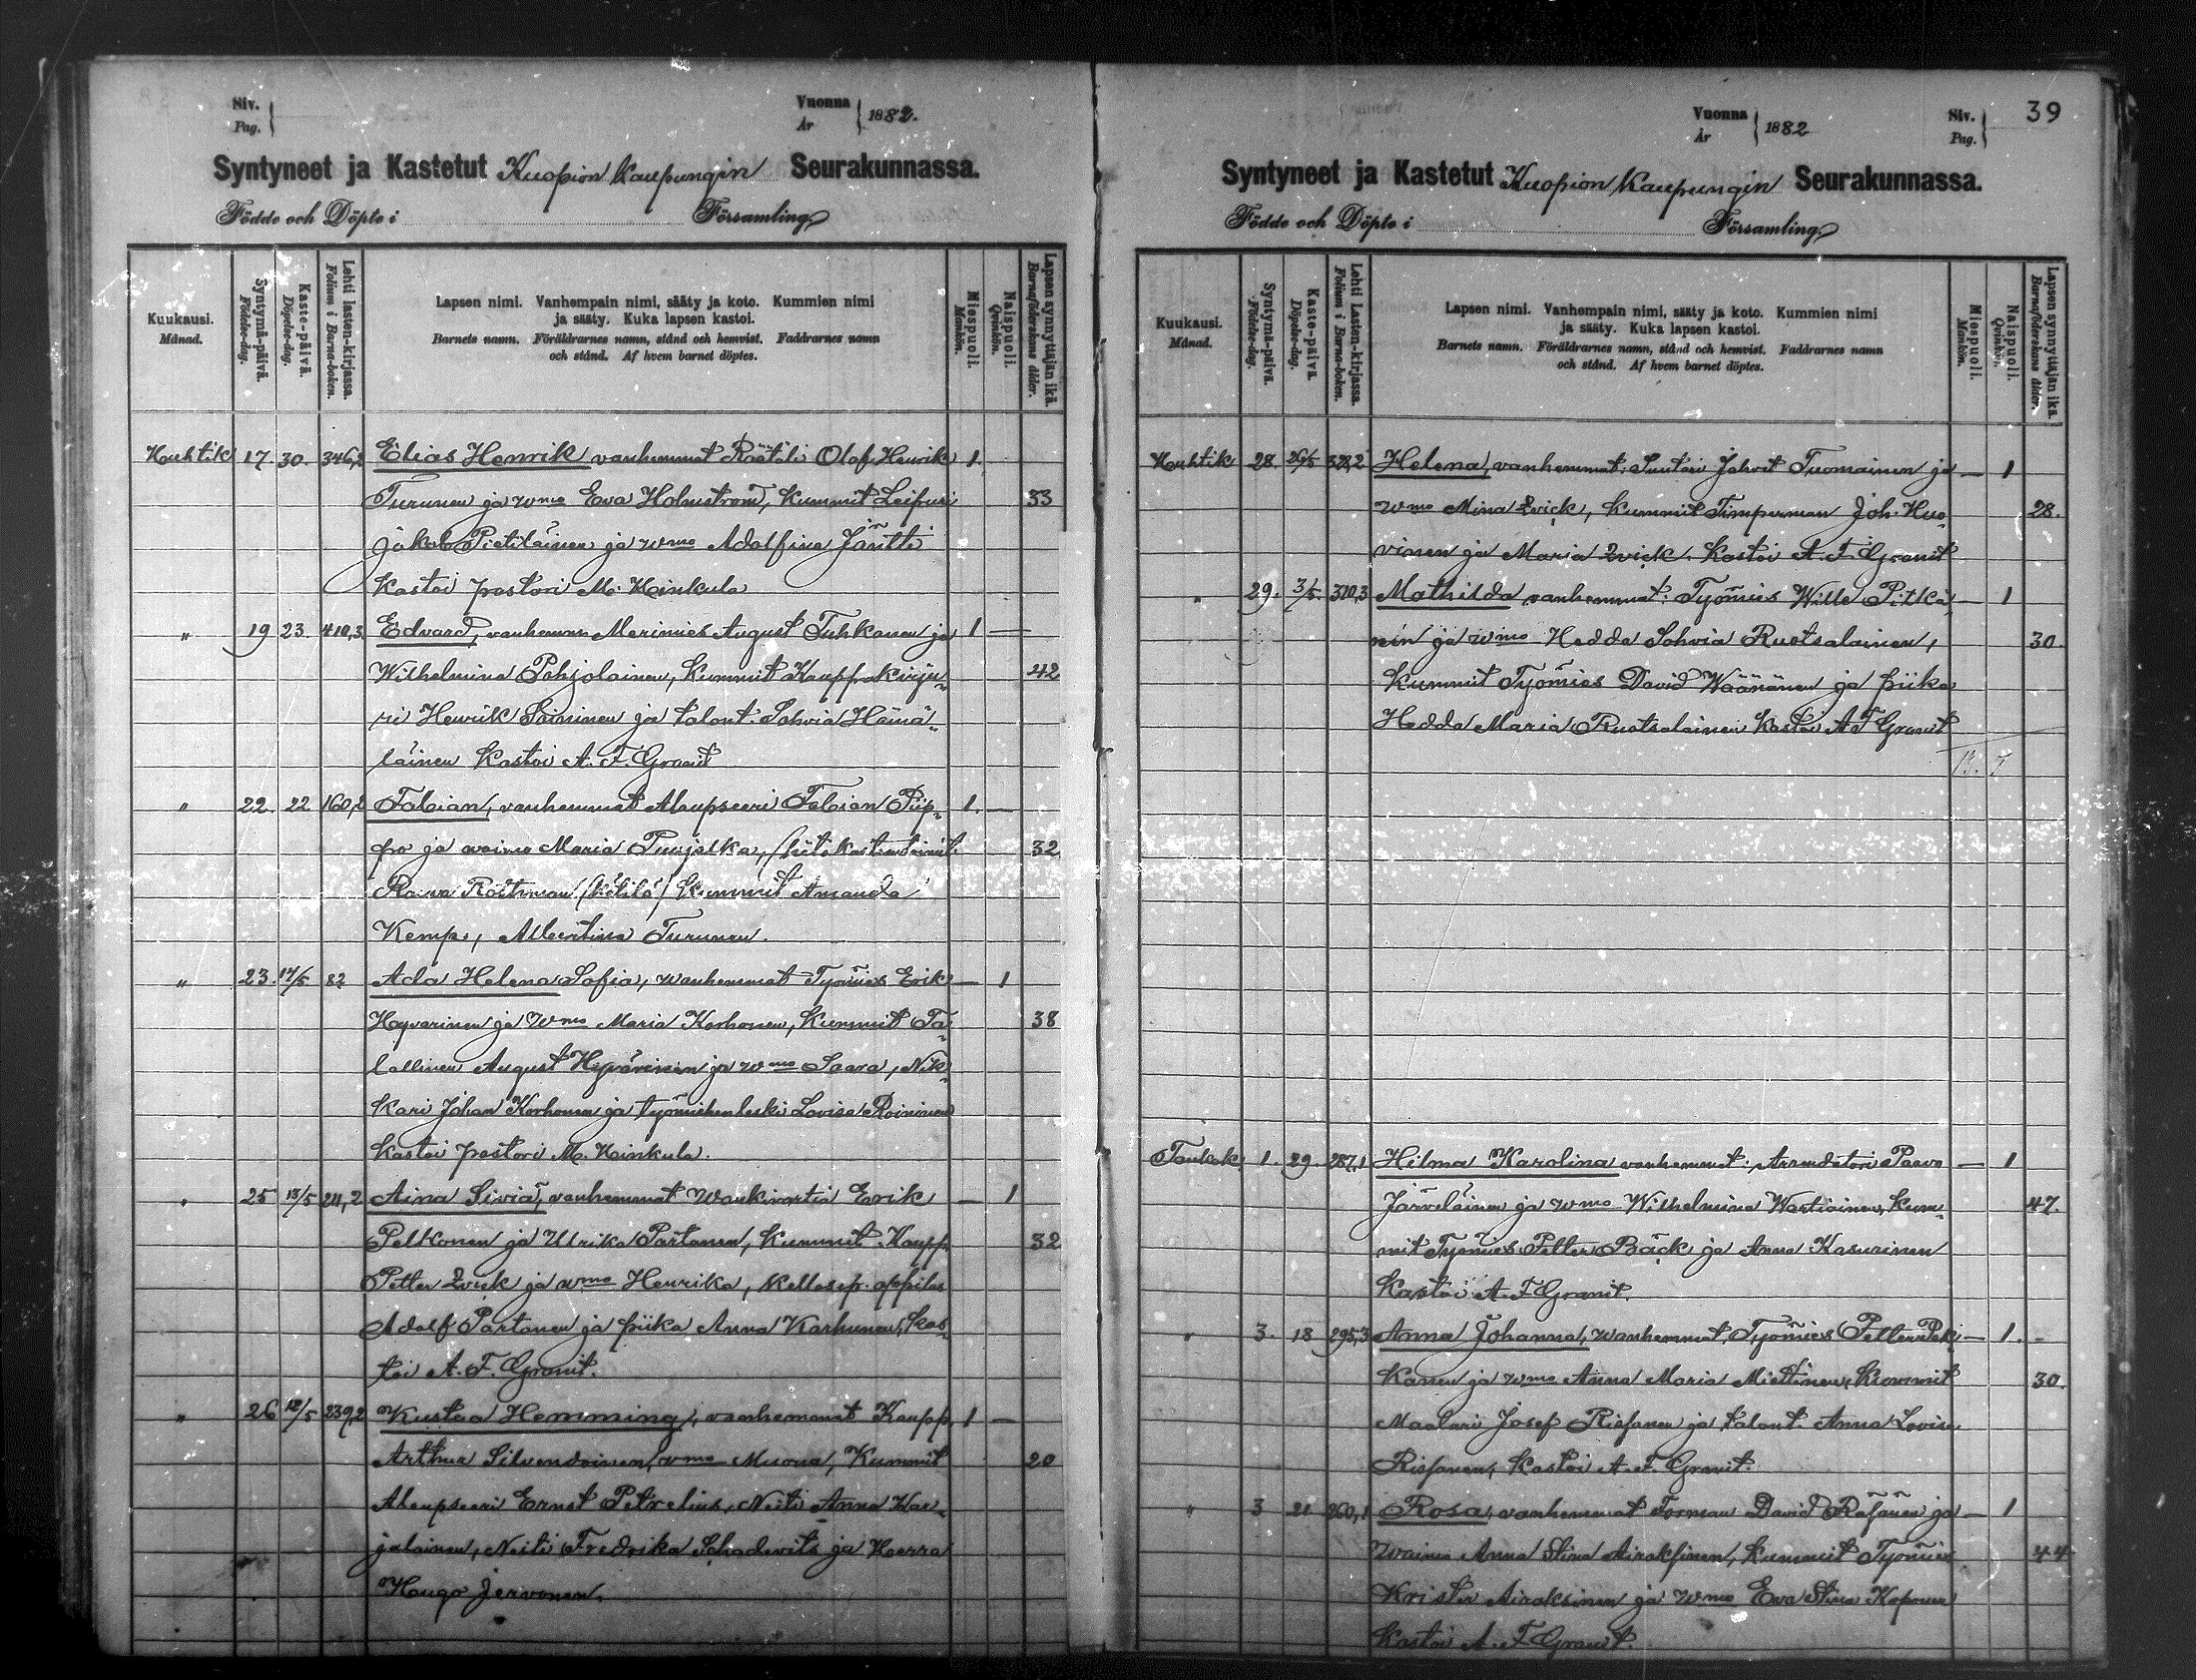 Siv.
Pag.
Vuonna
År
1882.
Syntyneet ja Kastetut Kuopion kaupungin Seurakunnassa.
Födde och Döpte i Församling.
Kuukausi.
Månad.
Syntymä-päivä.
Födelse-dag.
Kaste-päivä.
Döpelse-dag.
Lehti lasten-kirjassa.
Folium i Barna-boken.
Lapsen nimi. Vanhempain nimi, sääty ja koto. Kummien nimi
ja sääty. Kuka lapsen kastoi.
Barnets namn. Föräldrarnes namn, stånd och hemvist. Faddrarnes namn
och stånd. Af hvem barnet döptes.
Miespuoli.
Mankön.
Naispuoli.
Qvinkön.
Lapsen synnyttäjän ikä.
Barnaföderskans ålder.
Huhtik 17 30. 346,2 Elias Henrik vanhemmat Räätäli Olof Henrik 1.
Turunen ja wmo Eva Holmström, Kummit Leipuri 33
Jakob Pietiläinen ja wmo Adolfina Jäntti
Kastoi pastori M. Heinkula
" 19 23. 410,3 Edvard, vanhemm Merimies August Tuhkanen ja 1 —
Wilhelmina Pohjolainen, Kummit Kauppakirju- 42
ri Henrik Soininen ja talont. Sohvia Hämä-
läinen Kastoi A. F. Granit
" 22. 22 160,2 Fabian, vanhemmat Alaupseeri Fabian Piip- 1. —
po ja waimo Maria Puujalka, hätäkasteen toimit. 32
Rouva Rostman (kätilö) Kummit Amanda
Kemp, Albertina Turunen.
" 23. 17/5 82 Ada Helena Sofia, wanhemmat Työmies Erik — 1
Hyvärinen ja Wmo Maria Korhonen, Kummit Ta- 38
lollinen August Hyvärinen ja wmo Saara, Nik-
kari Johan Korhonen ja työmiehenleski Lovisa Roininen
Kastoi pastori M. Heinkula.
" 25 13/5 211,2 Aina Siviä, vanhemmat Wankivartia Erik — 1
Pelkonen ja Ulrika Partanen, Kummit Kaupp. 32
Petter Zvick ja wmo Henrika, Kellosep. oppilas
Adolf Partanen ja piika Anna Karhunen, Kas-
toi A. F. Granit.
" 26 12/5 239,2 Kustaa Hemming, vanhemmat Kaupp. 1 —
Arthur Silvendoinen, wmo Muona, Kummit 20
Aleupseeri Ernst Petrelius, Neiti Anna Kar-
jalainen, Neiti Fredrika Schadevits ja Herra
Hugo Jervonen.
Vuonna
År
1882
Siv.
Pag.
39
Syntyneet ja Kastetut Kuopion Kaupungin Seurakunnassa.
Födde och Döpte i Församling.
Kuukausi.
Månad.
Syntymä-päivä.
Födelse-dag.
Kaste-päivä.
Döpelse-dag.
Lehti Lasten-kirjassa.
Folium i Barna-boken.
Lapsen nimi. Vanhempain nimi, sääty ja koto. Kummien nimi
ja sääty. Kuka lapsen kastoi.
Barnets namn. Föräldrarnes namn, stånd och hemvist. Faddrarnes namn
och stånd. Af hvem barnet döptes.
Miespuoli.
Mankön.
Naispuoli.
Qvinkön.
Lapsen synnyttäjän ikä.
Barnaföderskans ålder.
Huhtik 28. 26/5 328,2 Helena, vanhemmat: Suutari Johvit Tuomainen ja — 1
wmo Mina Zvick, Kummit Timperman Joh. Huo- 28.
vinen ja Maria Zvick. Kastoi A. F. Granit
" 29. 3/5. 310,3 Mathilda vanhemmat: Työmies Wille Pitkä- — 1
nen ja wmo Hedda Sohvia Ruotsalainen, 30.
Kummit Työmies David Wäänänen ja piika
Hedda Maria Ruotsalainen Kastoi A F Granit
Toukok 1. 29. 287,1 Hilma Karolina vanhemmat: Arendatori Paavo — 1
Järveläinen ja wmo Wilhelmina Wartiainen, Kum- 47.
mit Työmies Petter Bäck ja Anna Kasurinen
Kastoi A. F Granit.
" 3. 18 295,3 Anna Johanna, wanhemmat, Työmies Petter Pek- — 1. -
kanen ja wmo Anna Maria Miettinen, Kummit 30.
Maalari Josef Rissanen ja talont. Anna Lovisa
Rissanen, Kastoi A. F. Granit.
" 3 21 260,1 Rosa, vanhemmat Forman David Räsänen ja — 1
Waimo Anna Stina Airaksinen, Kummit Työmies 44
Krister Airaksinen ja wmo Eva Stina Koponen
Kastoi A. F Granit.